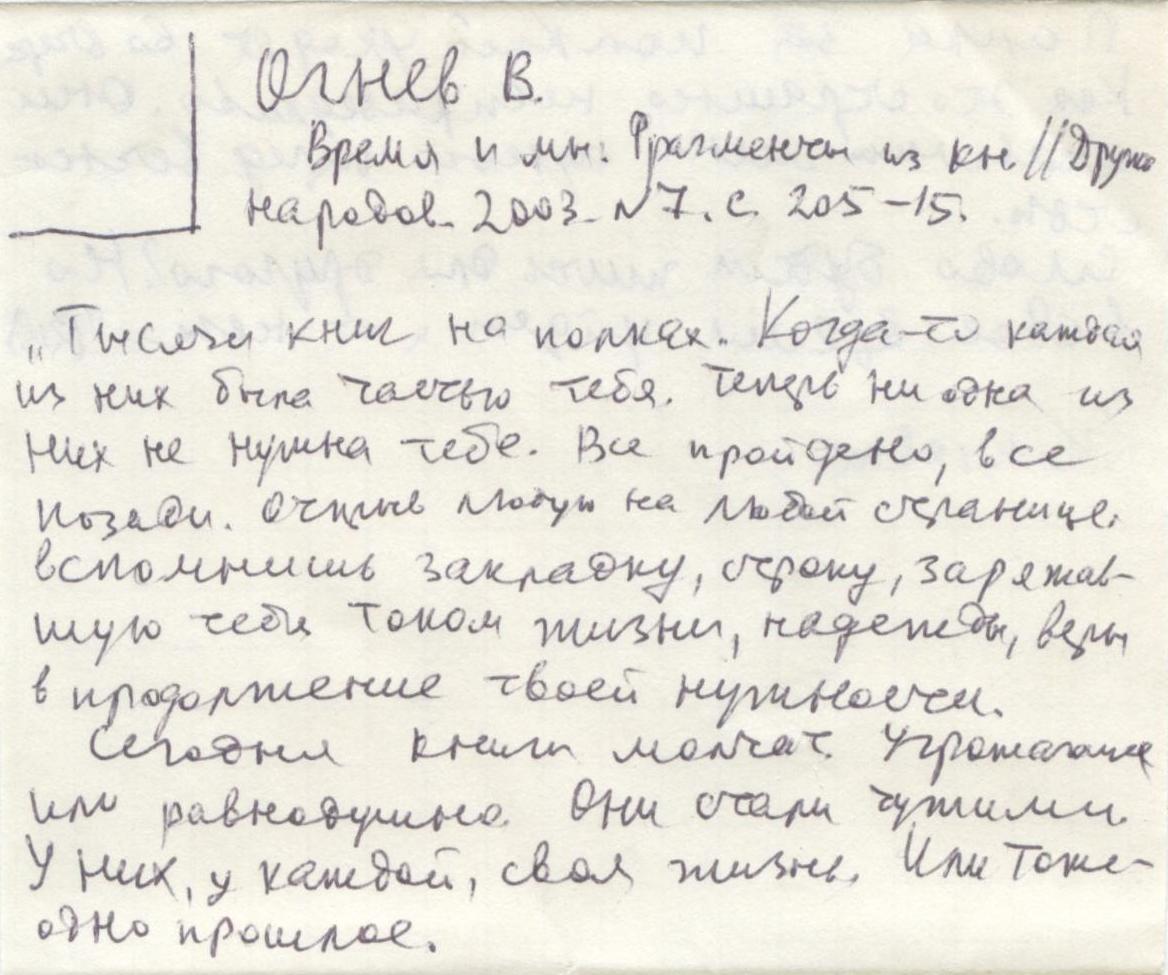 Огнев В.
Время и мы. Фрагменты из кн. // Дружба
народов. 2003. N 7. С. 205-15.
„Тысячи книг на полках. Когда-то каждая
из них была частью тебя. Теперь ни одна из
них не нужна тебе. Все пройдено, все
позади. Открыв любую на любой странице,
вспомнишь закладку, строку, заряжав-
шую тебя током жизни, надежды, веры
в продолжение твоей нужности.
Сегодня книги молчат. Угрожающе
или равнодушно. Они стали чужими.
У них, у каждой, своя жизнь. Или тоже -
одно прошлое.